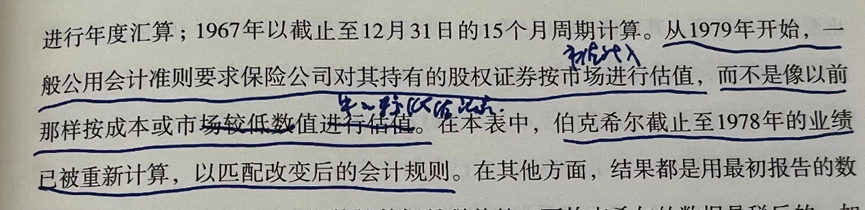 进行年度汇算；1967年以截止至12月31日的15个月周期计算。从1979年开始，一
般公用会计准则要求保险公司对其持有的股权证券按市场进行估值，而不是像以前
那样按成本或市场较低数值进行估值。在本表中，伯克希尔截止至1978年的业绩
已被重新计算，以匹配改变后的会计规则。在其他方面，结果都是用最初报告的数